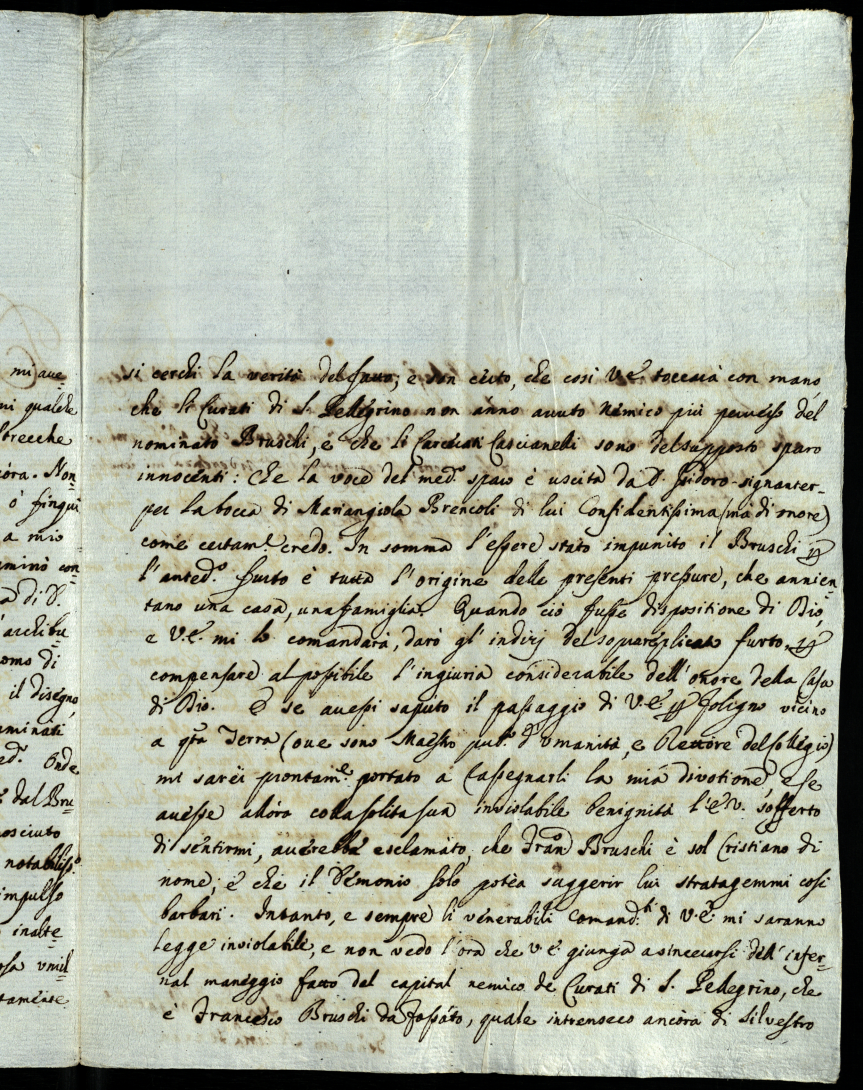 mi aue=
mi qualche
strecche
cora. Non
ò fingui
a mio
aminò con
a di D.
archibu
omo di
il disegno
aminati
ed.º Onde
dal Bru=
nosciuto
notabiliss.º
impulso
inalte=
osa vmil=
tamente
si cerchi la verità del fatto; e son certo, che così V.E. toccarà con mano
che li Curati di S. Pellegrino non anno auuto nemico più peruerso del
nominato Bruschi, e che li Carcerati Cascianelli sono del supposto sparo
innocenti: Che la voce del med.º sparo è uscita da D. Isidoro signanter=
per la bocca di Mariangiola Brencoli di lui Confidentissima (ma di onore)
come certam.e credo. In somma l'essere stato impunito il Bruschi p
l'anted.º furto è tutta l'origine delle presenti pressure, che annien=
tano una casa, una famiglia. Quando ciò fusse dispositione di Dio,
e V.E. mi lo comandarà, darò gl'indizj del sopareplicato furto, p
compensare al possibile l'ingiuria considerabile dell'onore della Casa
di Dio. E se auessi saputo il passaggio di V.E. p Foligno vicino
a qsta Terra (oue sono Maestro pub.º d'vmanità, e Rettore del Collegio)
mi sarei prontam.e portato a rassegnarli la mia divotione, e se
auesse allora colla solita sua inviolabile benignità l'E.V. sofferto
di sentirmi, auerebbe esclamato, che Fran.º Bruschi è sol Cristiano di
nome; e che il Demonio solo potea suggerir lui stratagemmi così
barbari. Intanto, e sempre li venerabili comand.ti di V.E. mi saranno
legge inviolabile, e non vedo l'ora che V.E. giunga a sincerarsi dell'infer=
nal maneggio fatto dal capital nemico de Curati di S. Pellegrino, che
è Francesco Bruschi da Fossato, quale intrenseco ancora di Silvestro